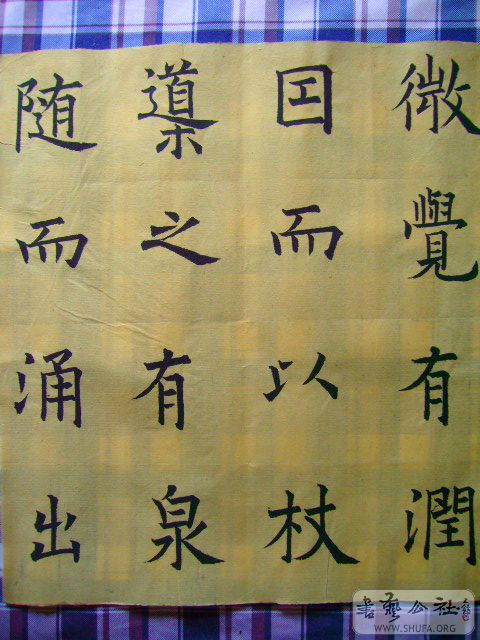 微覺有潤
囙而以杖
導之有泉
随而涌出
書藝公社
WWW.SHUFA.ORG